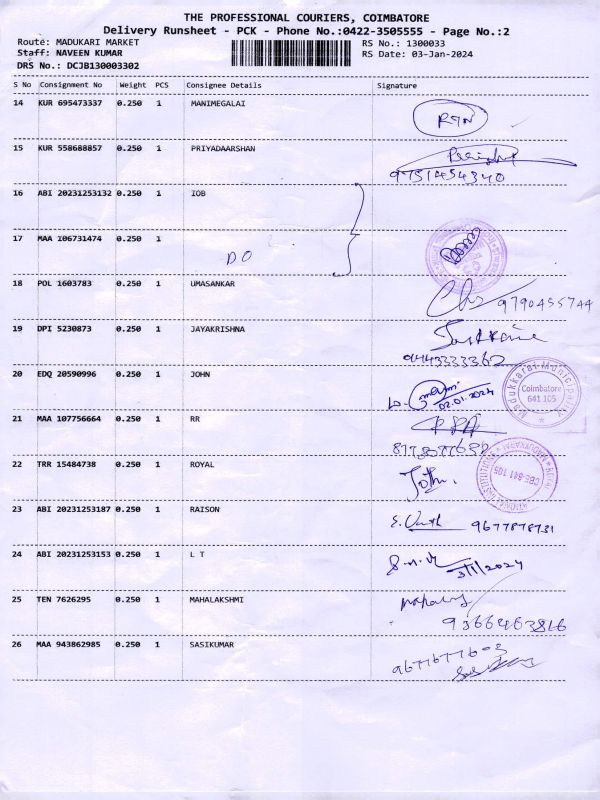 THE PROFESSIONAL COURIERS, COIMBATORE
Delivery Runsheet - PCK - Phone No.:0422-3505555 - Page No.:2
Route: MADUKARI MARKET RS No.: 1300033
Staff: NAVEEN KUMAR RS Date: 03-Jan-2024
DRS No.: DCJB130003302
S No Consignment No Weight PCS Consignee Details Signature
14 KUR 695473337 0.250 1 MANIMEGALAI
15 KUR 558688857 0.250 1 PRIYADAARSHAN
9751454340
16 ABI 20231253132 0.250 1 IOB
17 MAA 106731474 0.250 1 DO
18 POL 1603783 0.250 1 UMASANKAR 9790455744
19 DPI 5230873 0.250 1 JAYAKRISHNA
9443333362
20 EDQ 20590996 0.250 1 JOHN 02.01.2024
Madukkarai Municipality Coimbatore 641 105
21 MAA 107756664 0.250 1 RR
22 TRR 15484738 0.250 1 ROYAL John.
CBE-641 105
23 ABI 20231253187 0.250 1 RAISON 9677878731
24 ABI 20231253153 0.250 1 L T 3/1/2024
25 TEN 7626295 0.250 1 MAHALAKSHMI
9366463816
26 MAA 943862985 0.250 1 SASIKUMAR